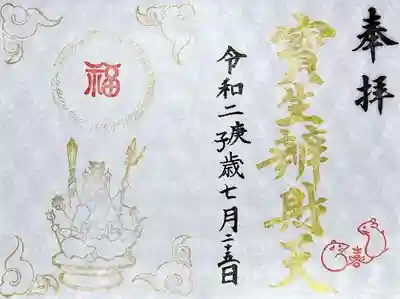 奉拝
寳生辨財天
令和二庚子歳七月二十五日
福